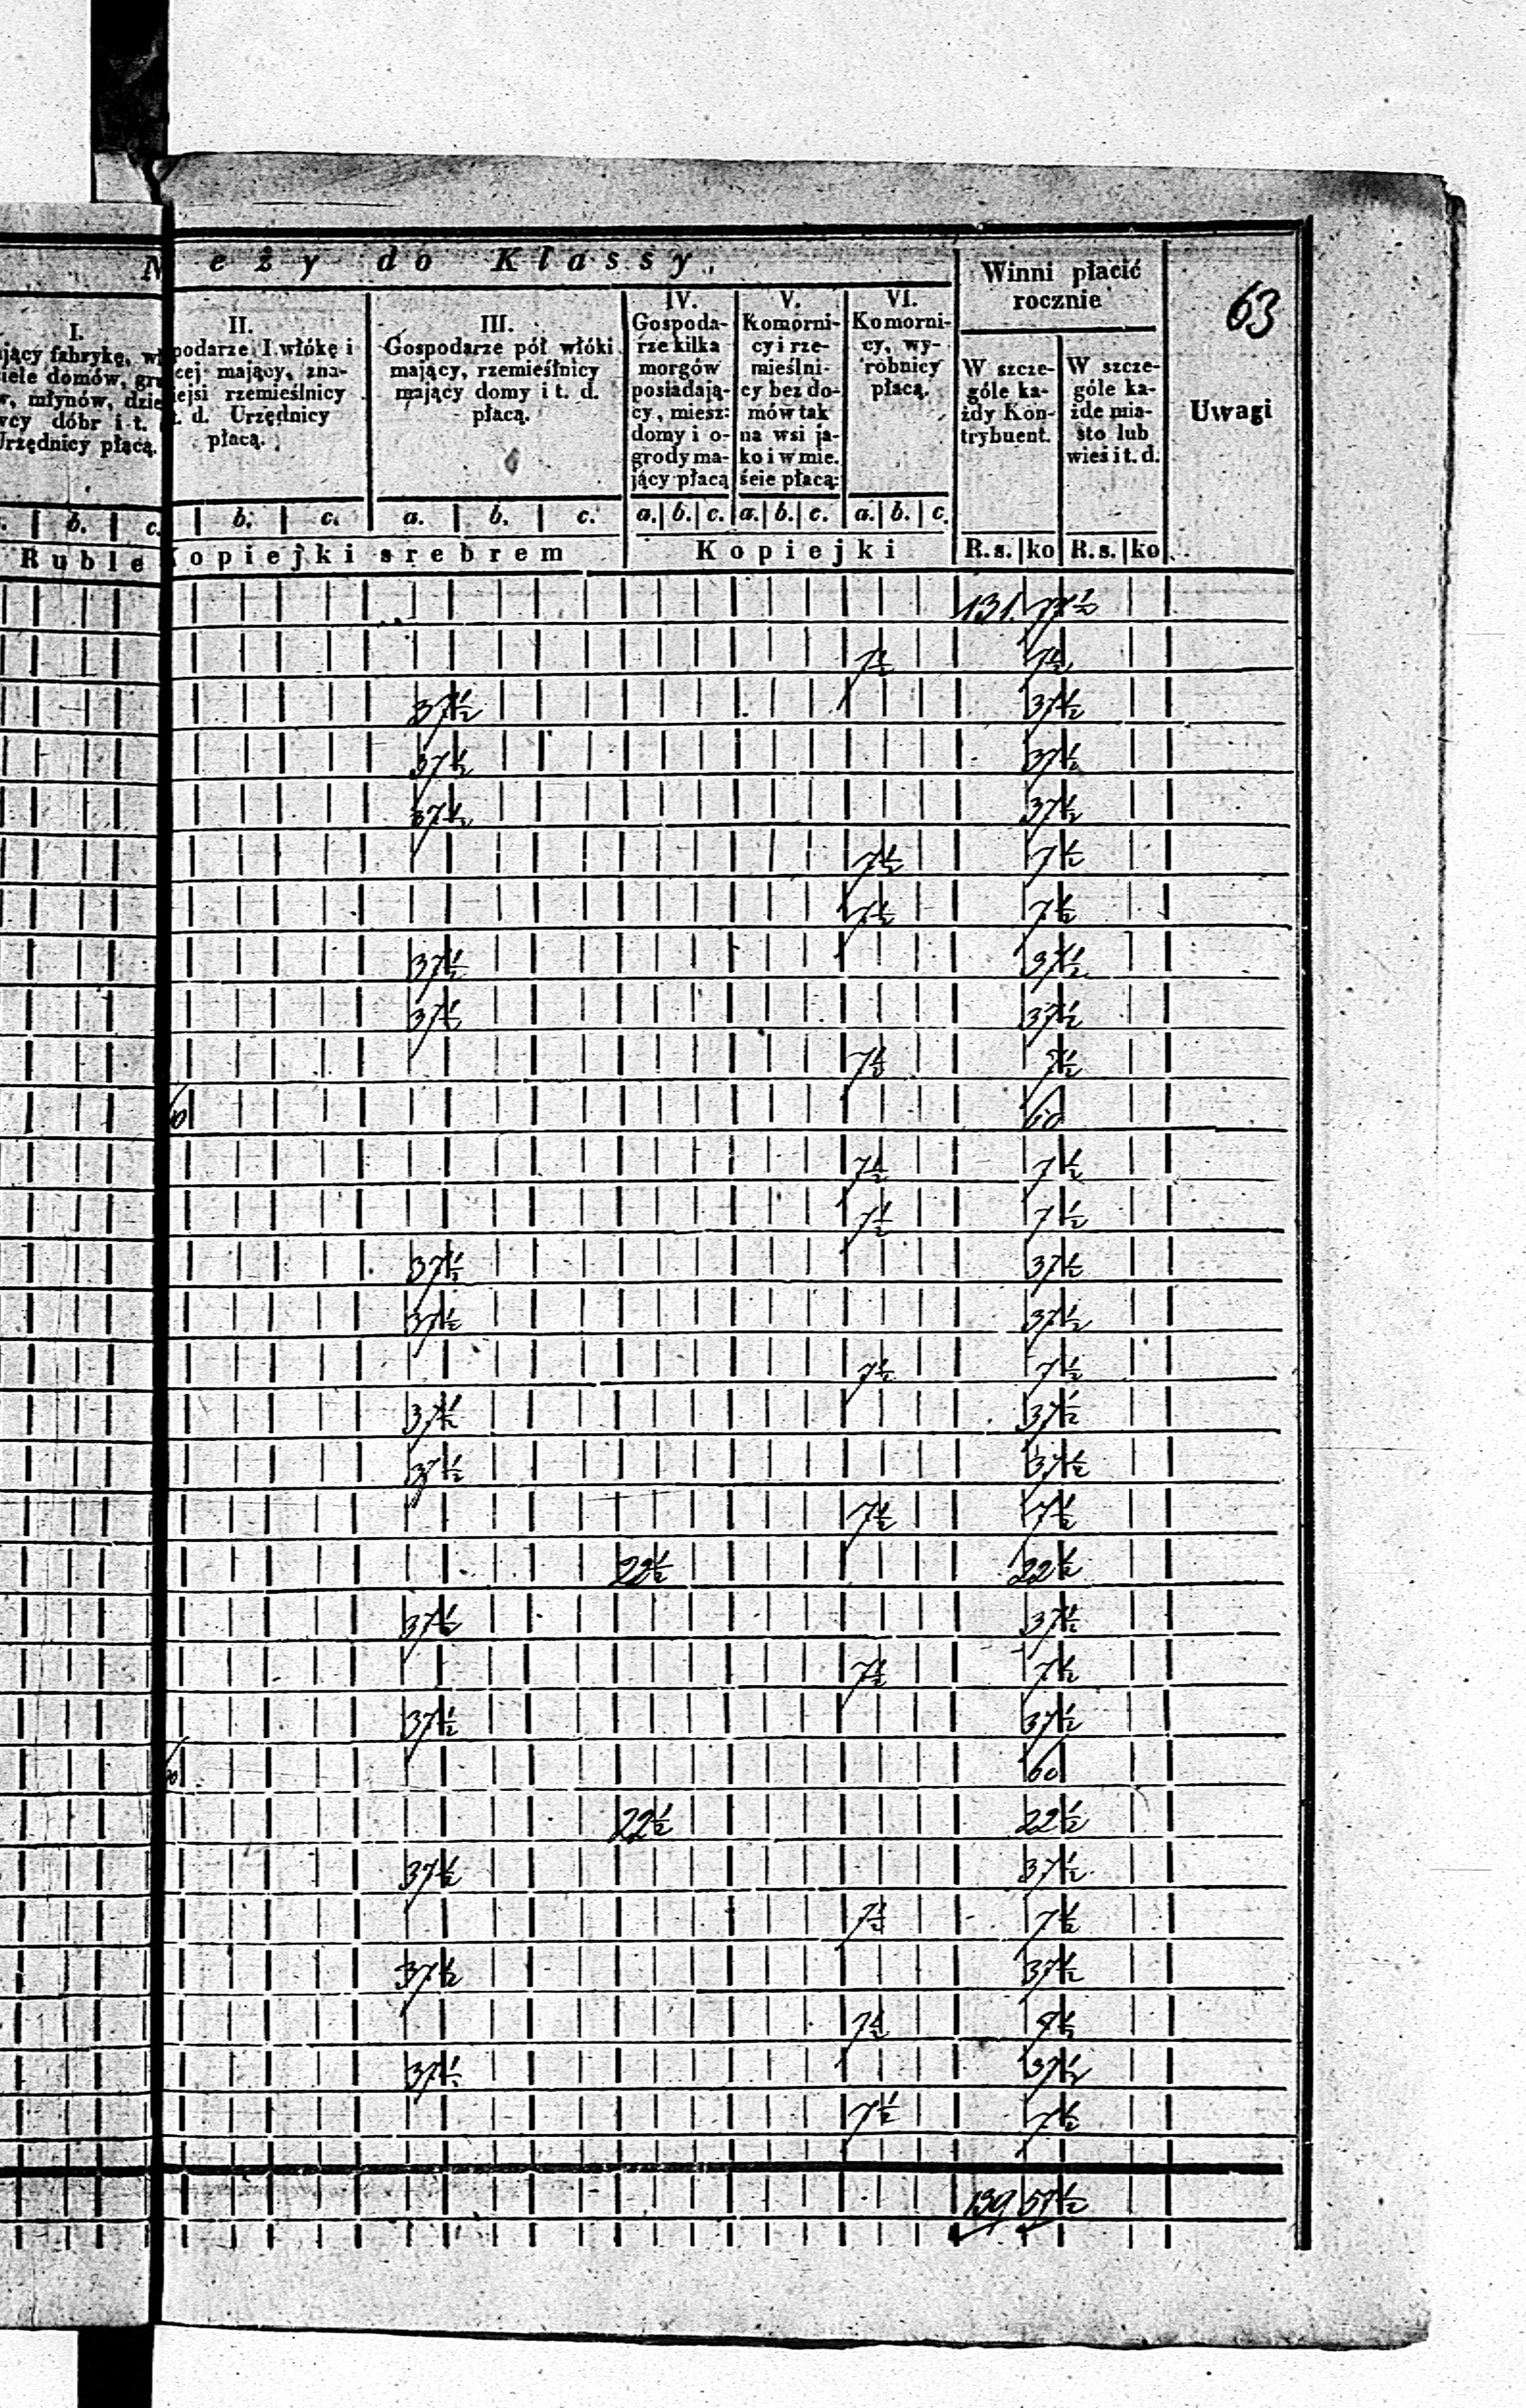 eży do Klassy.
Winni płacić rocznie
63
I.
jący fabrykę, wł
iele domów, gru
w, młynów, dzie
wcy dóbr i t.
Urzędnicy płacą.
II.
podarze I włókę i
cej mający, zna-
iejsi rzemieślnicy
t. d. Urzędnicy
płacą.
III.
Gospodarze pół włóki
mający, rzemieślnicy
mający domy i t. d.
płacą.
IV.
Gospoda-
rze kilka
morgów
posiadają-
cy, miesz:
domy i o-
grody ma-
jący płacą
V.
Komorni-
cy i rze-
mieślni-
cy bez do-
mów tak
na wsi ja-
ko i w mie.
ście płacą:
VI.
Komorni-
cy, wy-
robnicy
płacą.
W szcze-
góle ka-
żdy Kon-
trybuent.
W szcze-
góle ka-
żde mia-
sto lub
wieś i t. d.
Uwagi
b. c. b. c. a. b. c. a. b. c. a. b. c. a. b. c.
Ruble Kopiejki srebrem Kopiejki R.s. ko R.s. ko
131. 77½
7½ 7½
37½ 37½
37½ 37½
37½ 37½
7½ 7½
7½ 7½
37½ 37½
37½ 37½
7½ 7½
60 60
7½ 7½
7½ 7½
37½ 37½
37½ 37½
7½ 7½
37½ 37½
37½ 37½
7½ 7½
22½ 22½
37½ 37½
7½ 7½
37½ 37½
60 60
22½ 22½
37½ 37½
7½ 7½
37½ 37½
7½ 7½
37½ 37½
7½ 7½
139 57½